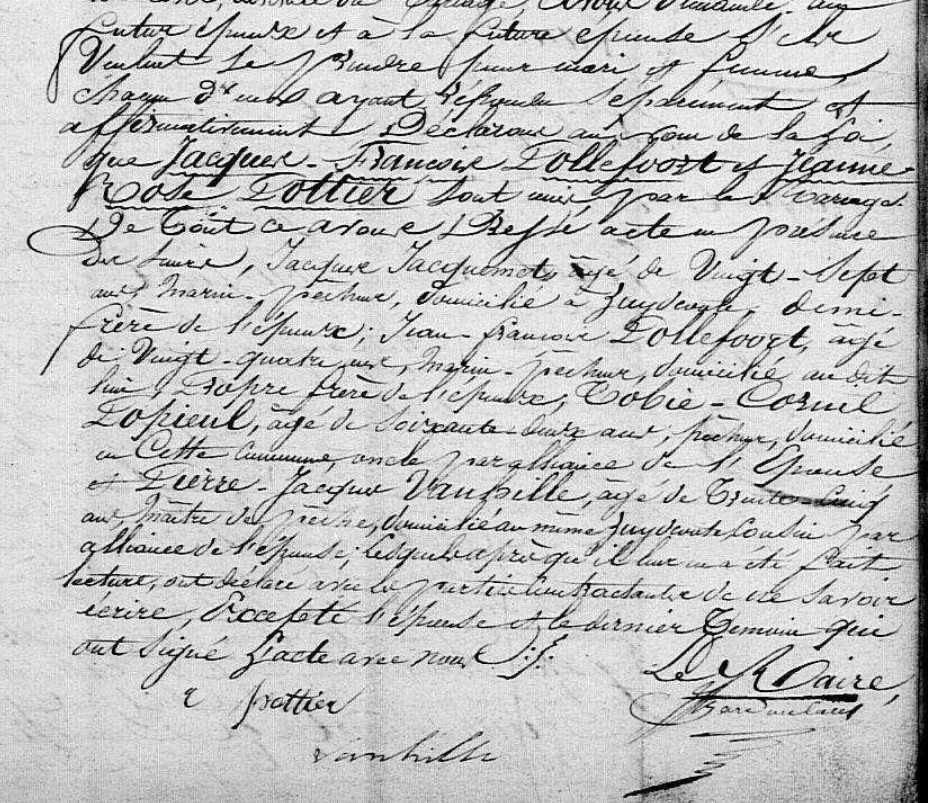 du mariage, avons demandé au
futur époux et à la future épouse s'ils
veulent se prendre pour mari et femme,
chacun d'eux ayant répondu séparément et
affirmativement Déclarons au nom de la Loi,
que Jacques-François Lollefoort et Jeanne-
Rose Pottier sont unis par le mariage.
De tout ce avons Dressé acte en présence
Des sieurs, Jacques Jacquemot, âgé de vingt-sept
ans, marin-pêcheur, domicilié à Zuydcoote, demi-
frère de l'époux; Jean-françois Lollefoort, âgé
de vingt-quatre ans, marin-pêcheur, domicilié au dit
lieu, Propre frère de l'époux; Tobie-Cornil
Dopieul, âgé de soixante-deux ans, pêcheur, domicilié
en cette commune, oncle par alliance de l'Epouse
et Pierre-Jacques Vanhille, âgé de trente-cinq
ans, maître de pêche, domicilié au même Zuydcoote Cousin par
alliance de l'épouse; lesquels après qu'il leur en a été fait
lecture, ont déclaré avec les parties contractantes de ne savoir
écrire, Excepté l'épouse et le dernier Témoin qui
ont signé l'acte avec nous
Le Maire,
r pottier
vanhille